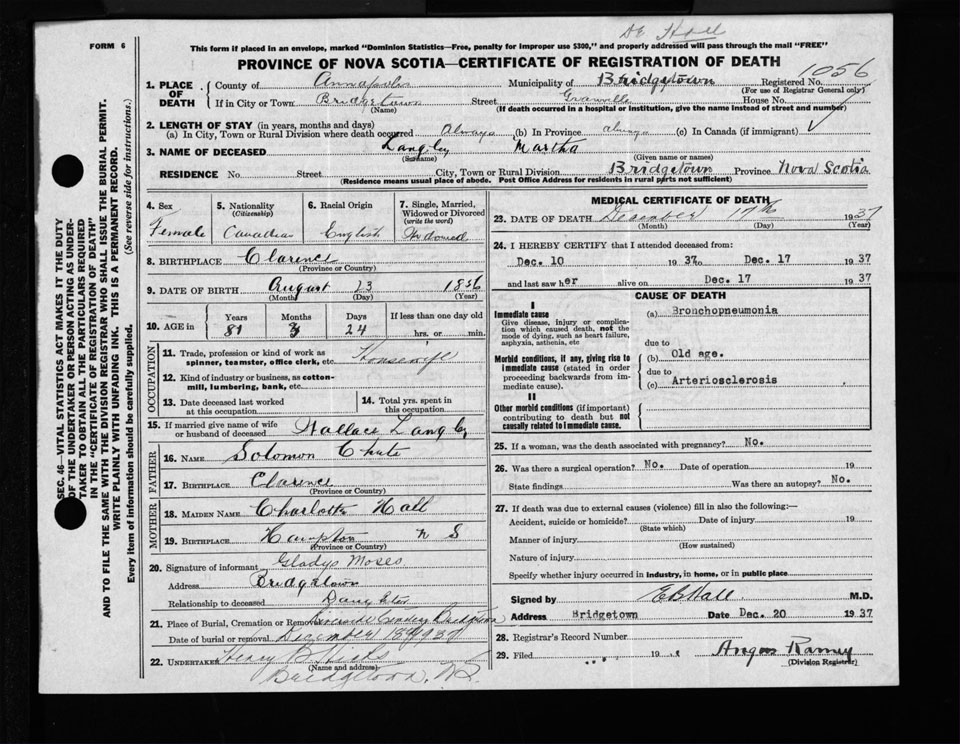 Dr Hall
FORM 6
This form if placed in an envelope, marked "Dominion Statistics—Free, penalty for improper use $300," and properly addressed will pass through the mail "FREE"
PROVINCE OF NOVA SCOTIA—CERTIFICATE OF REGISTRATION OF DEATH
1056
1. PLACE OF DEATH County of Annapolis Municipality of Bridgetown Registered No.
(For use of Registrar General only)
If in City or Town Bridgetown Street Granville House No.
(Name) (If death occurred in a hospital or institution, give the name instead of street and number)
2. LENGTH OF STAY (in years, months and days)
(a) In City, Town or Rural Division where death occurred Always (b) In Province always (c) In Canada (if immigrant) ✓
3. NAME OF DECEASED Langley Martha
(Surname) (Given name or names)
RESIDENCE No. Street City, Town or Rural Division Bridgetown Province Nova Scotia
(Residence means usual place of abode. Post Office Address for residents in rural parts not sufficient)
SEC. 46—VITAL STATISTICS ACT MAKES IT THE DUTY
OF THE UNDERTAKER OR PERSON ACTING AS UNDER-
TAKER TO OBTAIN ALL THE PARTICULARS REQUIRED
IN THE "CERTIFICATE OF REGISTRATION OF DEATH"
AND TO FILE THE SAME WITH THE DIVISION REGISTRAR WHO SHALL ISSUE THE BURIAL PERMIT.
WRITE PLAINLY WITH UNFADING INK. THIS IS A PERMANENT RECORD.
Every item of information should be carefully supplied. (See reverse side for instructions.)
4. Sex 5. Nationality (Citizenship) 6. Racial Origin 7. Single, Married, Widowed or Divorced (write the word)
Female Canadian English Widowed
8. BIRTHPLACE Clarence
(Province or Country)
9. DATE OF BIRTH August 23 1856
(Month) (Day) (Year)
10. AGE in Years Months Days If less than one day old
81 3 24 hrs. or min.
OCCUPATION
11. Trade, profession or kind of work as spinner, teamster, office clerk, etc. Housewife
12. Kind of industry or business, as cotton-mill, lumbering, bank, etc.
13. Date deceased last worked at this occupation
14. Total yrs. spent in this occupation
15. If married give name of wife or husband of deceased Wallace Langley
FATHER
16. NAME Solomon Chute
17. BIRTHPLACE Clarence
(Province or Country)
MOTHER
18. MAIDEN NAME Charlotte Hall
19. BIRTHPLACE Hampton N S
(Province or Country)
20. Signature of informant Gladys Moses
Address Bridgetown
Relationship to deceased Daughter
21. Place of Burial, Cremation or Removal Riverside Cemetery Bridgetown
Date of burial or removal December 18th 1937
22. UNDERTAKER Henry B Hicks
(Name and address)
Bridgetown, N.S.
MEDICAL CERTIFICATE OF DEATH
23. DATE OF DEATH December 17th 1937
(Month) (Day) (Year)
24. I HEREBY CERTIFY that I attended deceased from
Dec. 10 1937 to Dec. 17 1937
and last saw her alive on Dec. 17 1937
CAUSE OF DEATH
I
Immediate cause
Give disease, injury or complication which caused death, not the mode of dying, such as heart failure, asphyxia, asthenia, etc
(a) Bronchopneumonia
due to
Morbid conditions, if any, giving rise to immediate cause (stated in order proceeding backwards from immediate cause).
(b) Old age.
due to
(c) Arteriosclerosis
II
Other morbid conditions (if important) contributing to death but not causally related to immediate cause.
25. If a woman, was the death associated with pregnancy? No.
26. Was there a surgical operation? No. Date of operation 19
State findings Was there an autopsy? No.
27. If death was due to external causes (violence) fill in also the following:—
Accident, suicide or homicide? Date of injury 19
(State which)
Manner of injury
(How sustained)
Nature of injury
Specify whether injury occurred in industry, in home, or in public place
Signed by M.D.
Address Bridgetown Date Dec. 20 1937
28. Registrar's Record Number
29. Filed 19 Angus Ramey
(Division Registrar)